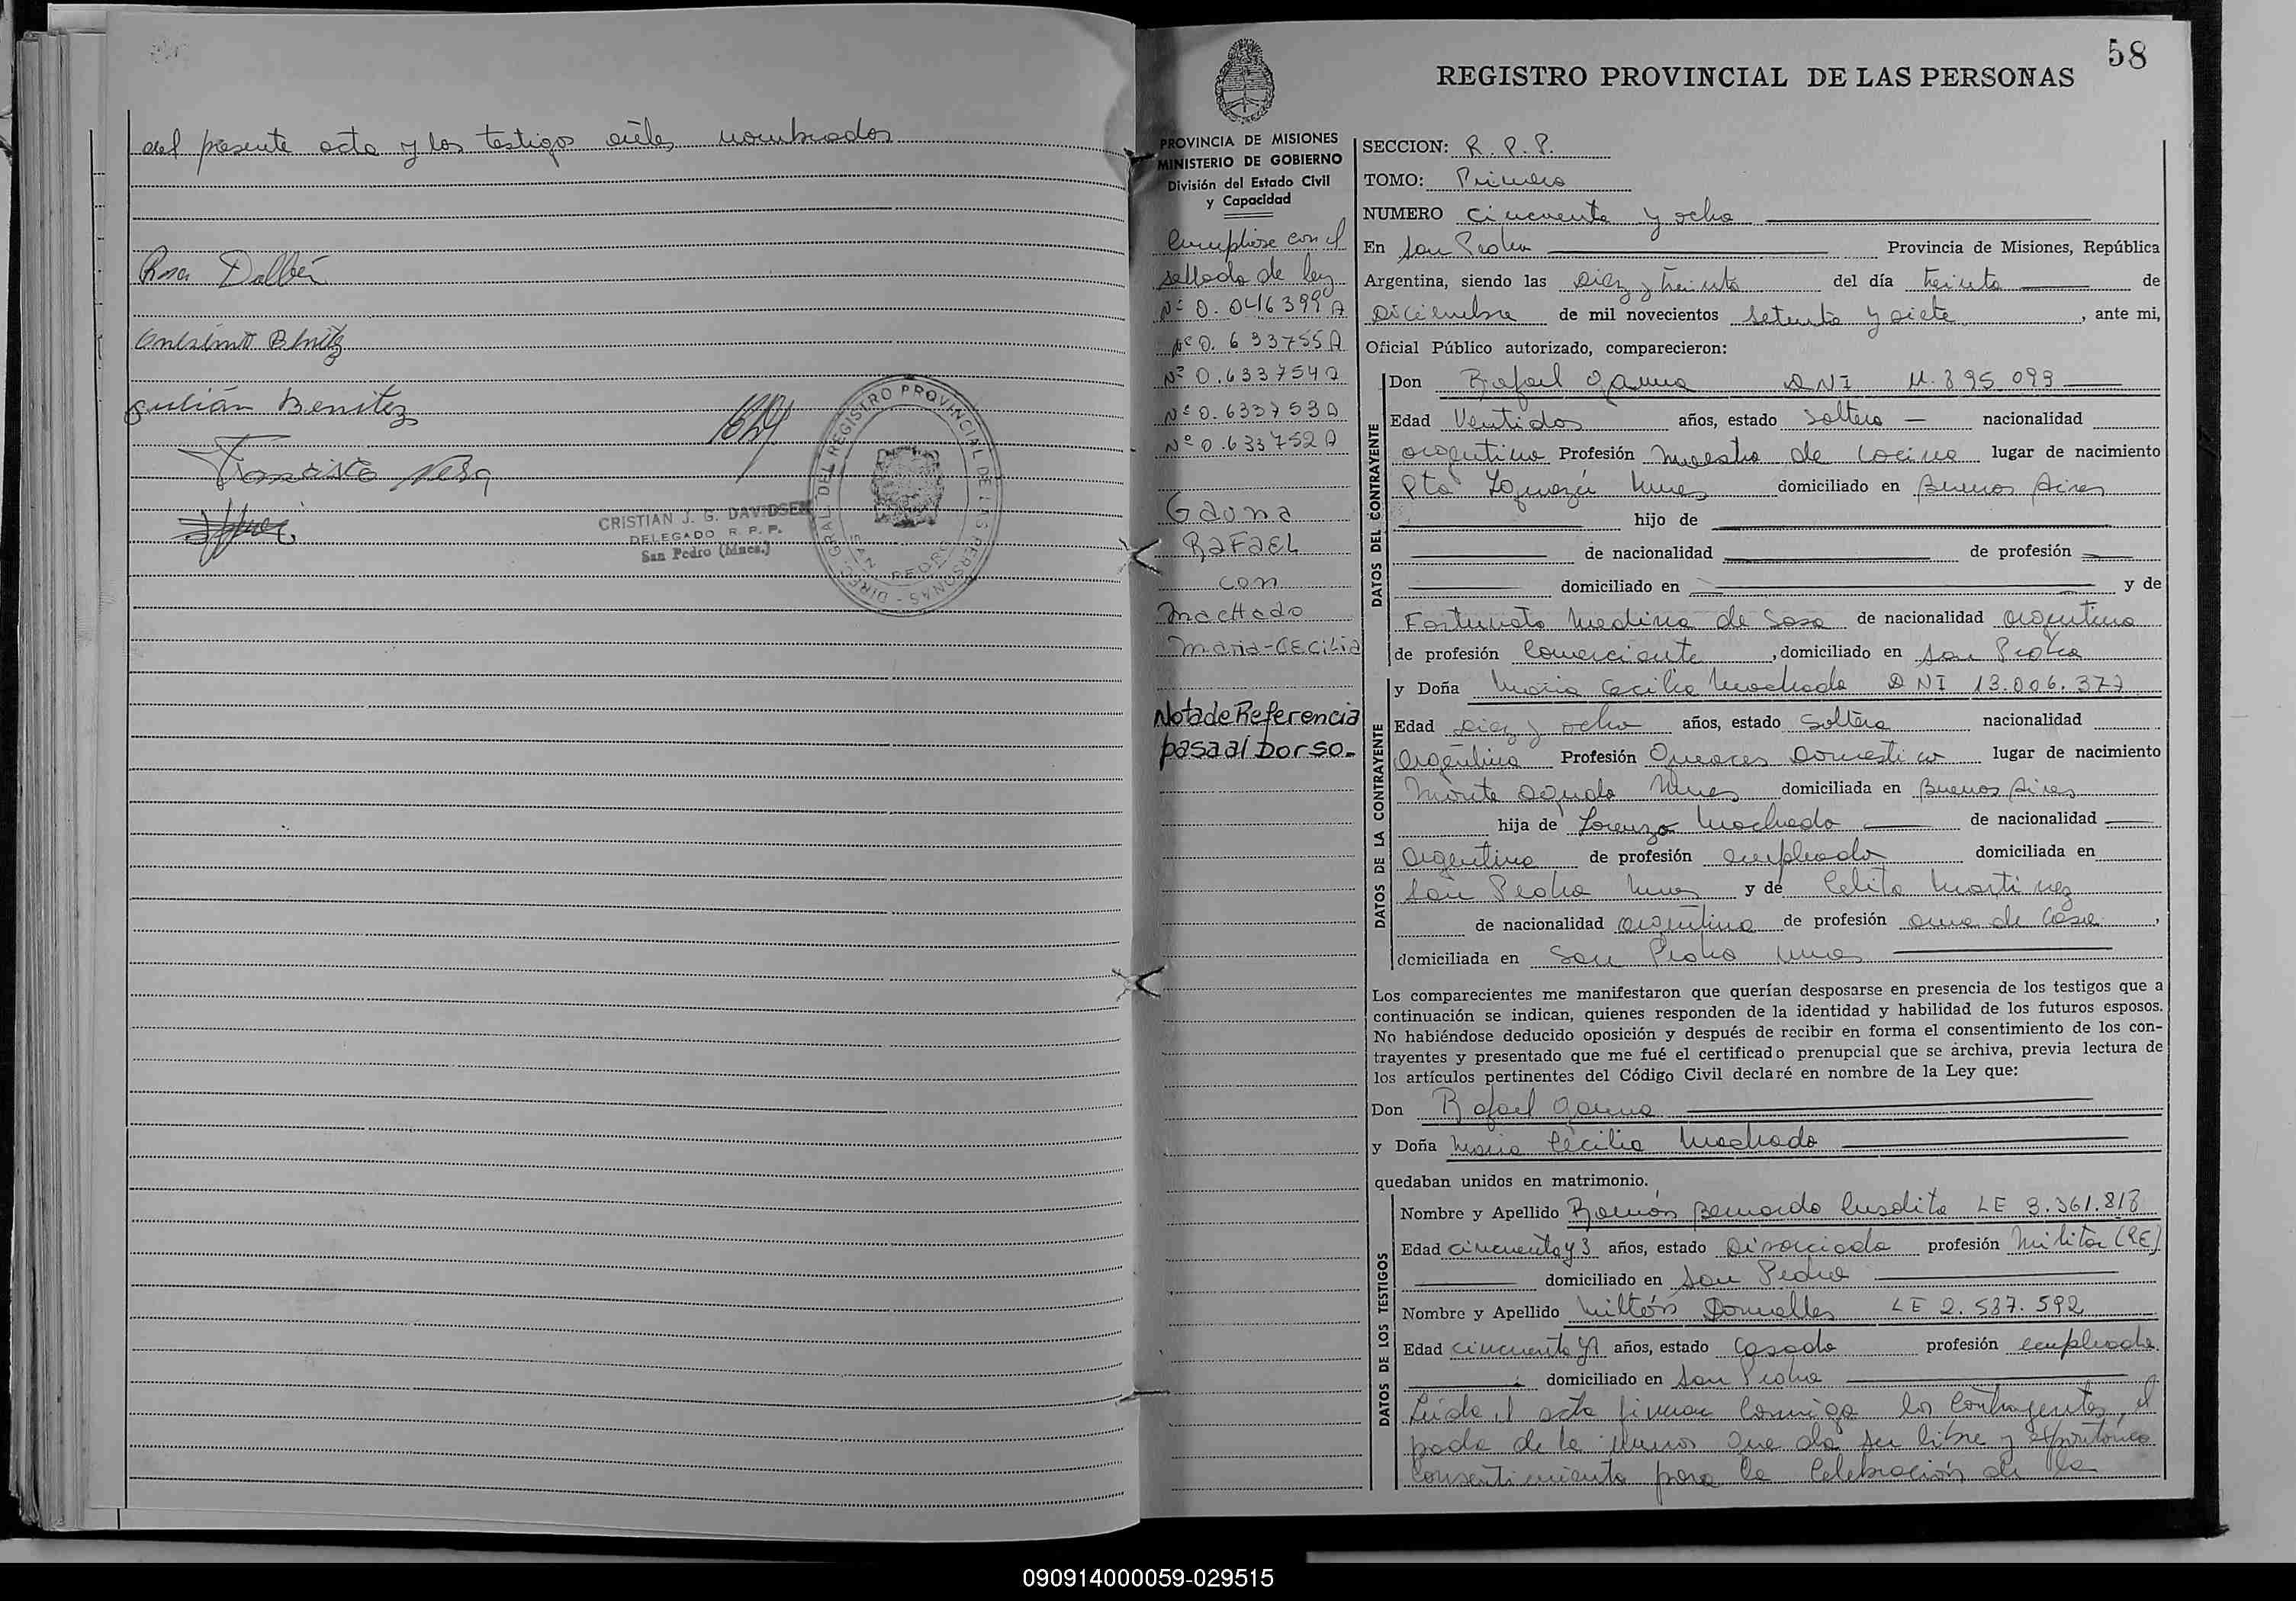 del presente acta y los testigos arriba nombrados
Rosa Dalbén
Onesimo Benitez
Julián Benitez
Francisco Vera
CRISTIAN J. G. DAVIDSEN
DELEGADO R. P. P.
San Pedro (Mnes.)
DIREC. GRAL. DEL REGISTRO PROVINCIAL DE LAS PERSONAS -
SAN PEDRO
58
REGISTRO PROVINCIAL DE LAS PERSONAS
PROVINCIA DE MISIONES
MINISTERIO DE GOBIERNO
División del Estado Civil
y Capacidad
Cumpliose con el
sellado de ley
Nº 0.0416399 A
Nº 0.633755 A
Nº 0.633754 A
Nº 0.633753 A
Nº 0.633752 A
Gauna
RAFAEL
con
Machado
Maria-CECiLia
Nota de Referencia
pasa al Dorso.-
SECCION: R. P. P.
TOMO: Primero
NUMERO Cincuenta y ocho
En San Pedro Provincia de Misiones, República
Argentina, siendo las Diez y treinta del día treinta de
Diciembre de mil novecientos setenta y siete, ante mi,
Oficial Público autorizado, comparecieron:
DATOS DEL CONTRAYENTE
Don Rafael Gauna DNI 11.895.093
Edad Ventidos años, estado Soltero - nacionalidad
argentina Profesión Maestro de Cocina lugar de nacimiento
Pto Iguazú Mnes domiciliado en Buenos Aires
hijo de
de nacionalidad de profesión
domiciliado en y de
Fortunata Medina de Sosa de nacionalidad argentina
de profesión Comerciante, domiciliado en San Pedro
DATOS DE LA CONTRAYENTE
y Doña Maria Cecilia Machado DNI 13.006.377
Edad Diez y ocho años, estado Soltera nacionalidad
Argentina Profesión Queaces Domestico lugar de nacimiento
Monte Agudo Mnes domiciliada en Buenos Aires
hija de Lorenzo Machado de nacionalidad
Argentina de profesión empleado domiciliada en
San Pedro Mnes y de Celita Martinez
de nacionalidad argentina de profesión ama de Casa,
domiciliada en San Pedro Mnes
Los comparecientes me manifestaron que querían desposarse en presencia de los testigos que a
continuación se indican, quienes responden de la identidad y habilidad de los futuros esposos.
No habiéndose deducido oposición y después de recibir en forma el consentimiento de los con-
trayentes y presentado que me fué el certificado prenupcial que se archiva, previa lectura de
los artículos pertinentes del Código Civil declaré en nombre de la Ley que:
Don Rafael Gauna
y Doña Maria Cecilia Machado
quedaban unidos en matrimonio.
DATOS DE LOS TESTIGOS
Nombre y Apellido Ramón Bernardo Cusolito LE 3.361.818
Edad cincuenta y 3 años, estado Divorciado profesión Militar (RE)
domiciliado en San Pedro
Nombre y Apellido Miltón Dornelles LE 2.537.592
Edad cincuenta y 1 años, estado Casado profesión empleado.
domiciliado en San Pedro
Leída el acta firman conmigo los Contrayentes, el
padre de la menor que da su libre y espontáneo
Consentimiento para la Celebración de la
090914000059-029515